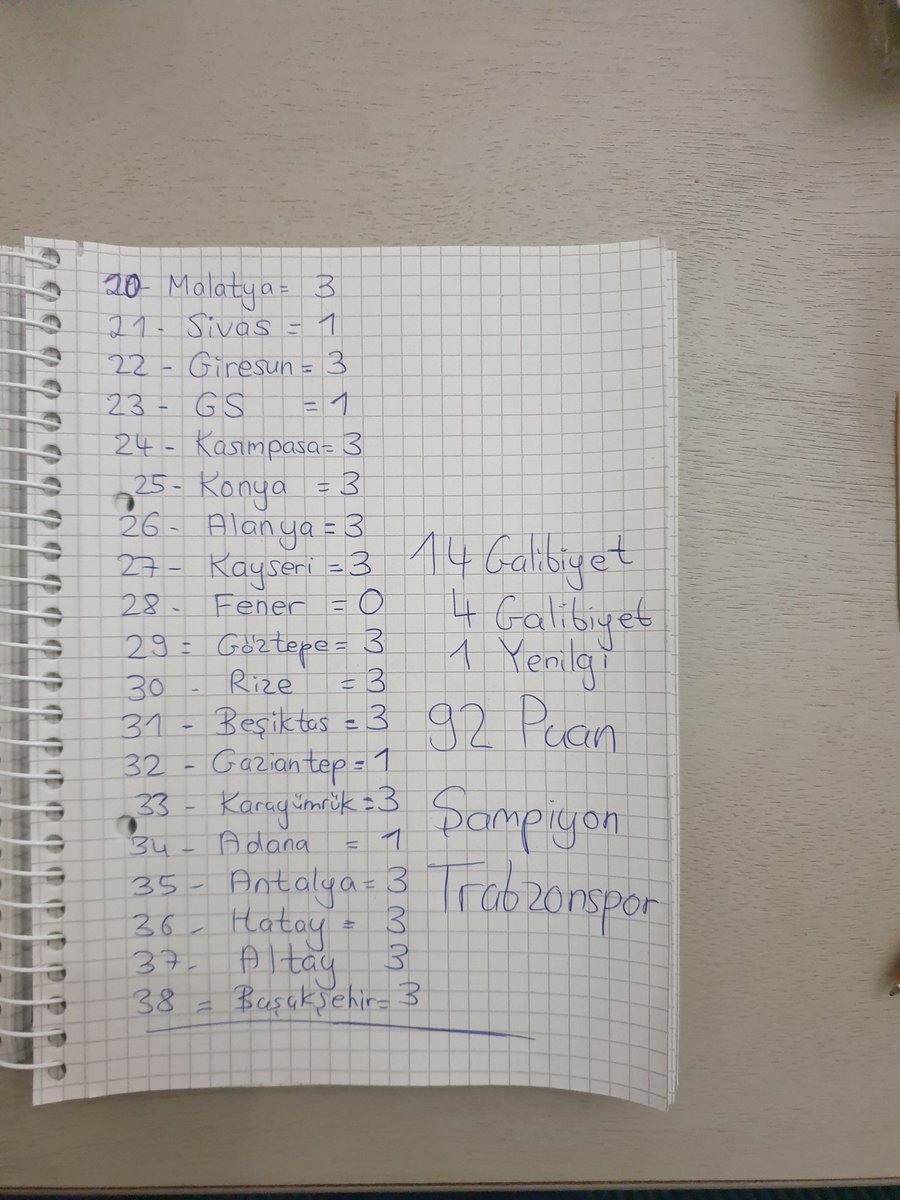 20- Malatya= 3
21- Sivas = 1
22 - Giresun= 3
23 - GS = 1
24 - Kasımpasa= 3
25 - Konya = 3
26 - Alanya = 3
27 - Kayseri = 3
28 - Fener = 0
29 = Göztepe= 3
30 - Rize = 3
31 - Beşiktas = 3
32 - Gaziantep= 1
33 - Karagümrük=3
34 - Adana = 1
35 - Antalya= 3
36 - Hatay = 3
37- Altay 3
38 = Başakşehir= 3
14 Galibiyet
4 Galibiyet
1 Yenilgi
92 Puan
Şampiyon
Trabzonspor